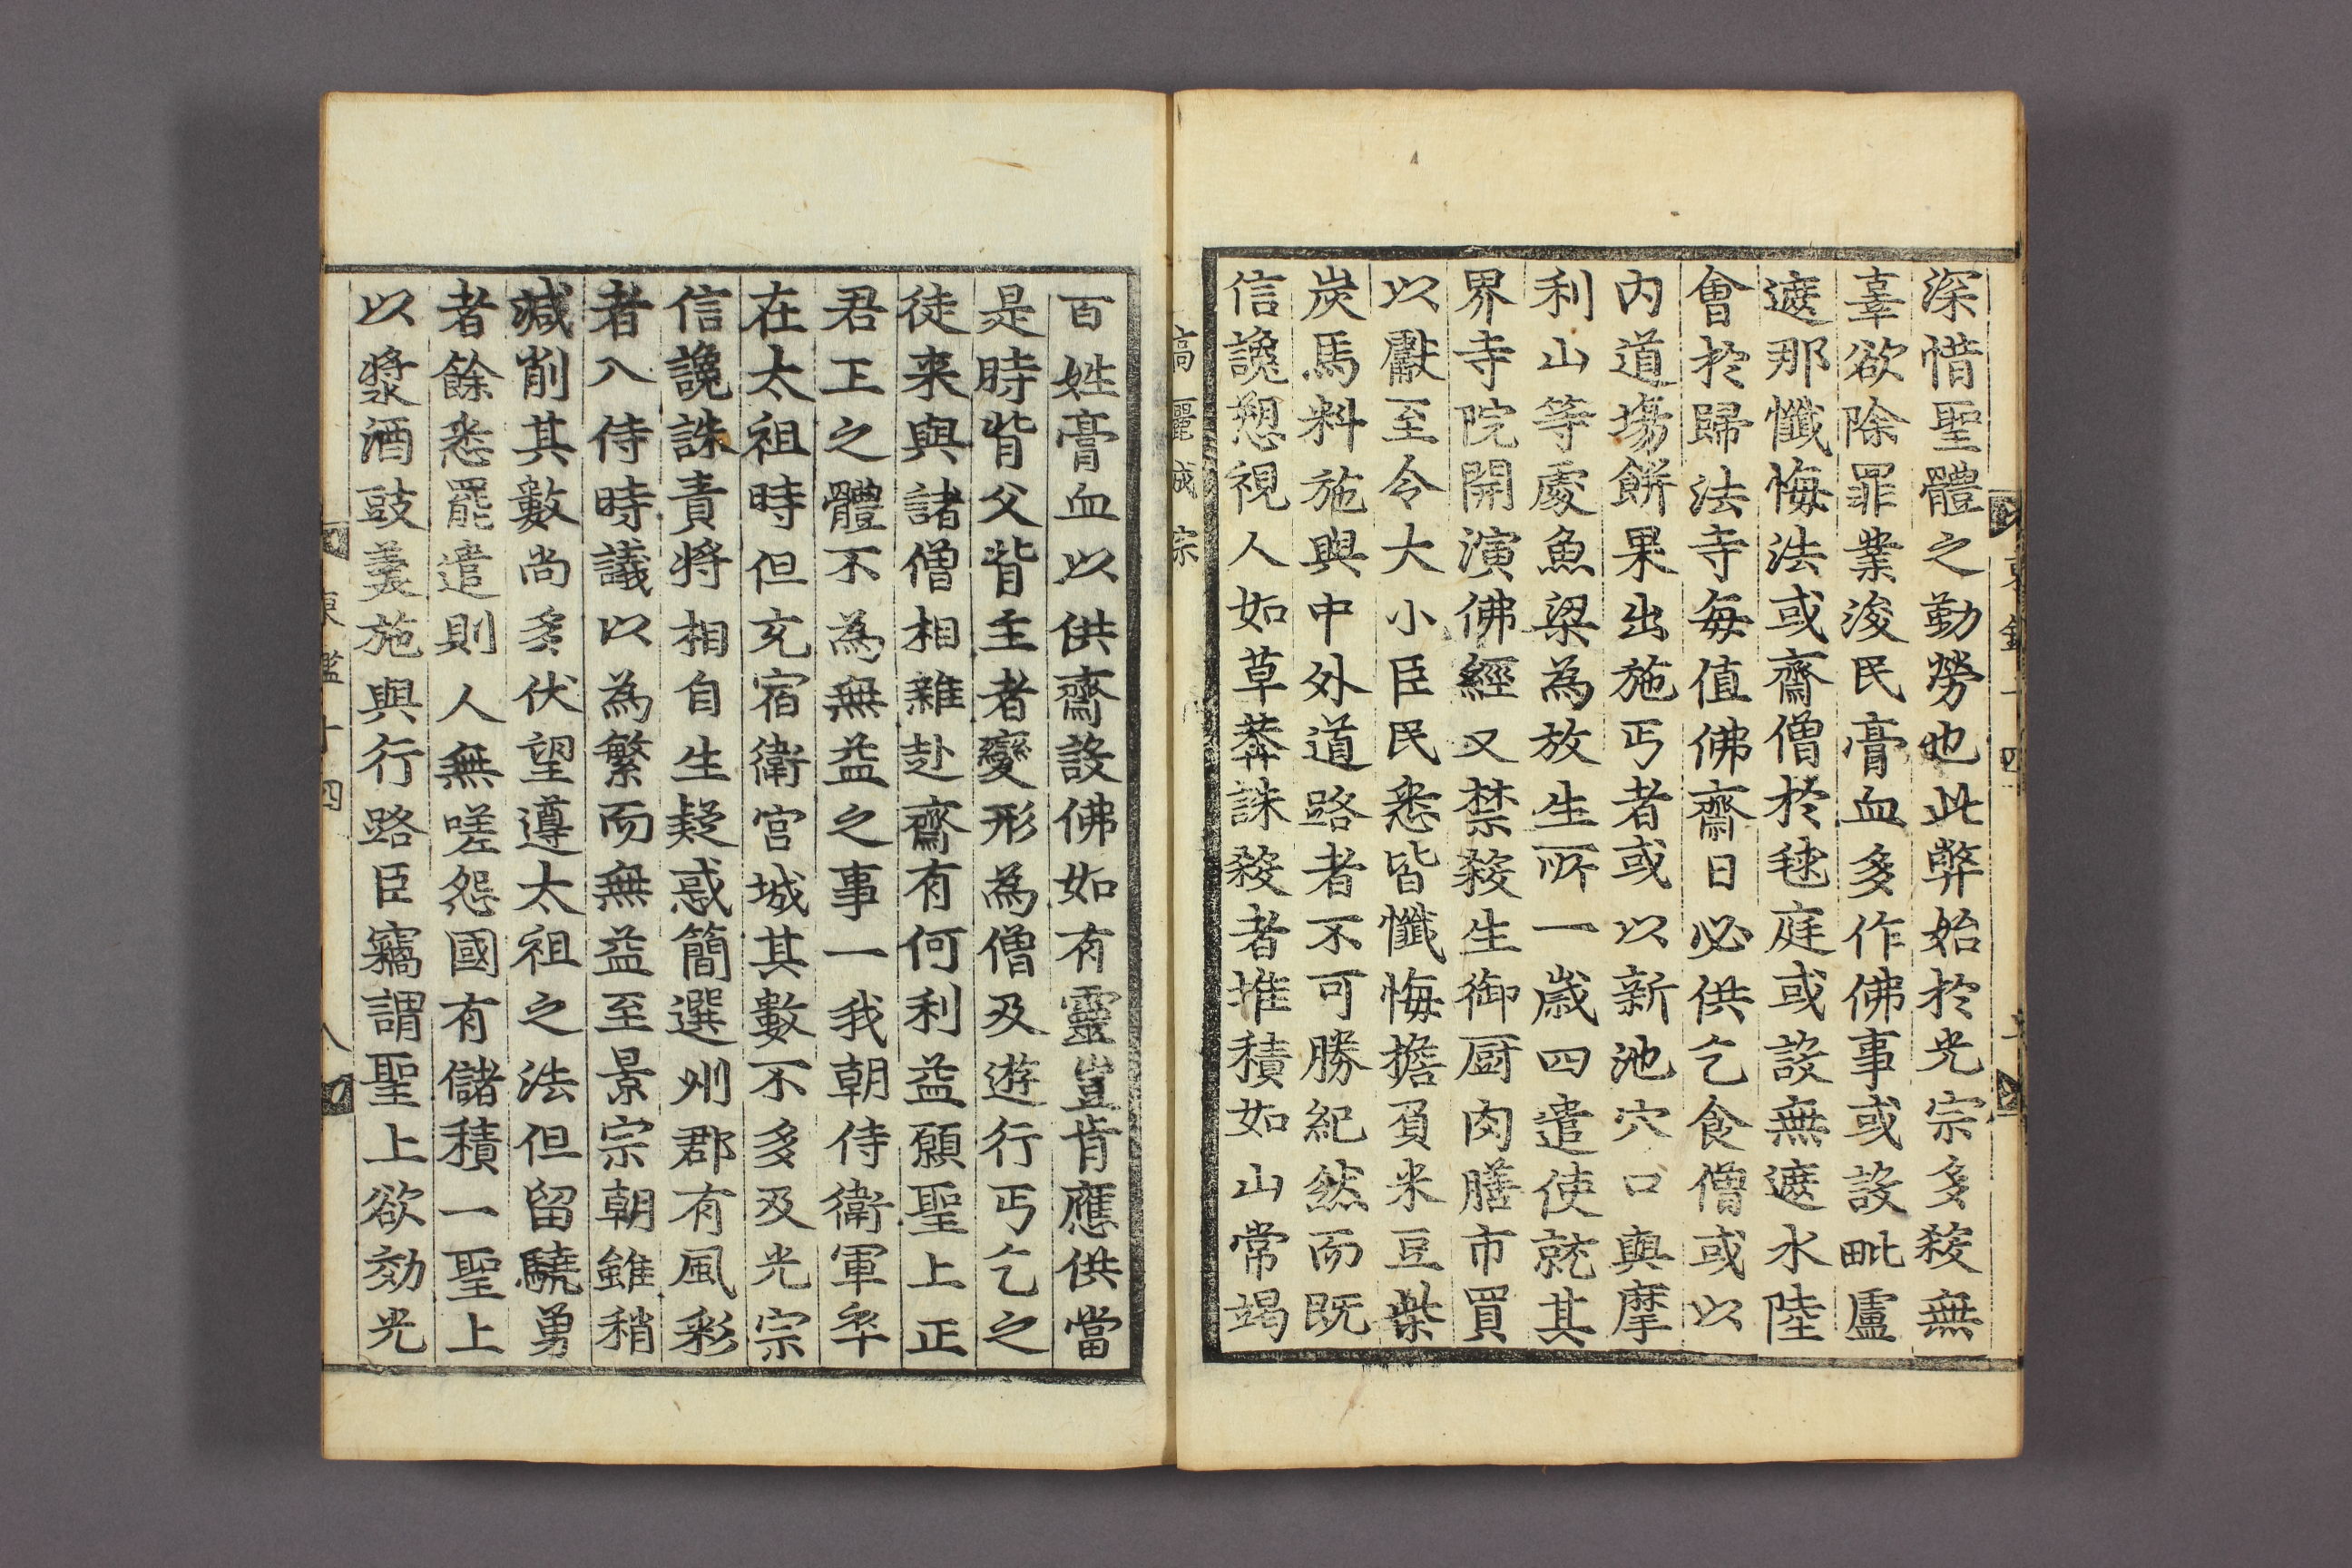 深惜聖體之勤勞也此弊始於光宗多殺無
辜欲除罪業浚民膏血多作佛事或設毗盧
遮那懺悔法或齋僧於毬庭或設無遮水陸
會於歸法寺每值佛齋日必供乞食僧或以
内道塲餅果出施丐者或以新池穴口與摩
利山等處魚梁為放生所一歲四遣使就其
界寺院開演佛經又禁殺生御厨肉膳市買
以獻至令大小臣民悉皆懺悔擔負米豆柴
炭馬料施與中外道路者不可勝紀然而既
信讒愬視人如草莽誅殺者堆積如山常竭
髙麗成宗
百姓膏血以供齋設佛如有靈豈肯應供當
是時背父背主者變形為僧及遊行丐乞之
徒来與諸僧相雜赴齋有何利益願聖上正
君王之體不為無益之事一我朝侍衛軍卒
在太祖時但充宿衛宮城其數不多及光宗
信讒誅責將相自生疑惑簡選州郡有風彩
者入侍時議以為繁而無益至景宗朝雖稍
减削其數尚多伏望遵太祖之法但留驍勇
者餘悉罷遣則人無嗟怨國有儲積一聖上
以漿酒豉羹施與行路臣竊謂聖上欲効光
東鑑十四
八